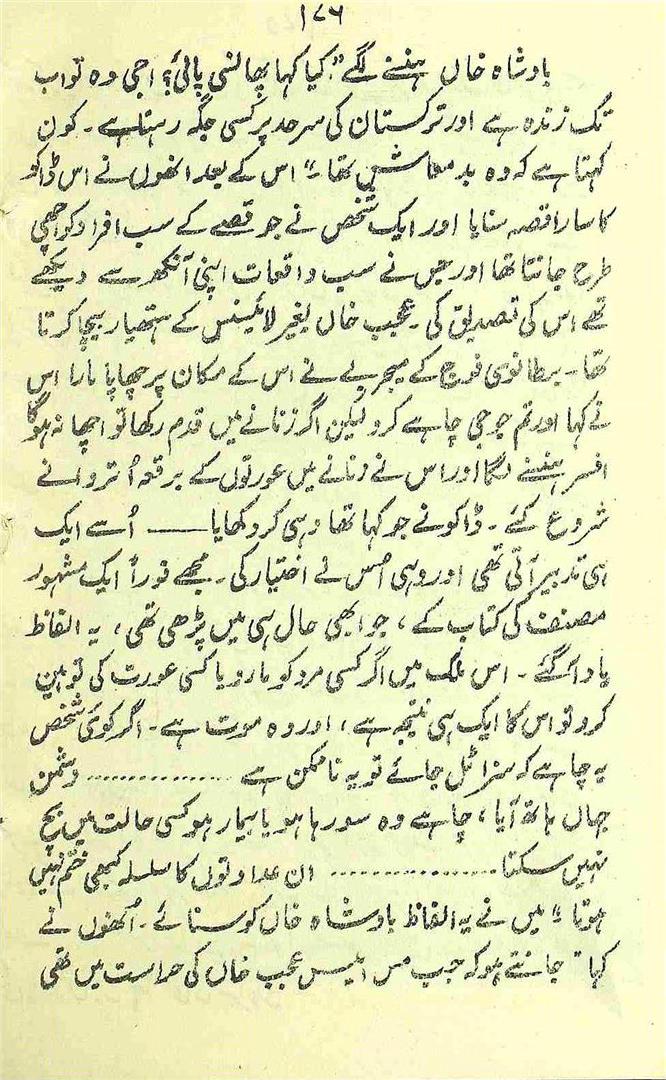 ۱۷۶
بادشاہ خاں ہنسنے لگے "کیا کہا پھانسی پائی؟ اجی وہ تو اب
تک زندہ ہے اور ترکستان کی سرحد پر کسی جگہ رہتا ہے ۔ کون
کہتا ہے کہ وہ بدمعاش تھا۔" اس کے بعد انھوں نے اس ڈاکو
کا سارا قصہ سنایا اور ایک شخص نے جو قصے کے سب افراد کو اچھی
طرح جانتا تھا اور جس نے سب واقعات اپنی آنکھ سے دیکھے
تھے اس کی تصدیق کی ۔ عجب خاں بغیر لائیسنس کے ہتھیار بیچا کرتا
تھا ۔ برطانوی فوج کے میجر بے نے اس کے مکان پر چھاپا مارا اس
نے کہا اور تم جو جی چاہے کرو لیکن اگر زنانے میں قدم رکھا تو اچھا نہ ہوگا
افسر ہنسنے لگا اور اس نے زنانے میں عورتوں کے برقعہ اُتروانے
شروع کئے ۔ ڈاکو نے جو کہا تھا وہی کر دکھایا —— اُسے ایک
ہی تدبیر آتی تھی اور وہی اُس نے اختیار کی ۔ مجھے فوراً ایک مشہور
مصنف کی کتاب کے ، جو ابھی حال ہی میں پڑھی تھی ، یہ الفاظ
یاد آگئے ۔ اس ملک میں اگر کسی مرد کو مارو یا کسی عورت کی توہین
کرو تو اس کا ایک ہی نتیجہ ہے ، اور وہ موت ہے ۔ اگر کوئی شخص
یہ چاہے کہ سزا ٹل جائے تو یہ ناممکن ہے .............. دشمن
جہاں ہاتھ آیا ، چاہے وہ سو رہا ہو یا بیمار ہو کسی حالت میں بچ
نہیں سکتا ................ ان عداوتوں کا سلسلہ کبھی ختم نہیں
ہوتا ۔" میں نے یہ الفاظ بادشاہ خاں کو سنائے ۔ اُنھوں نے
کہا "جانتے ہو کہ جب مس ایلیس عجب خاں کی حراست میں تھی